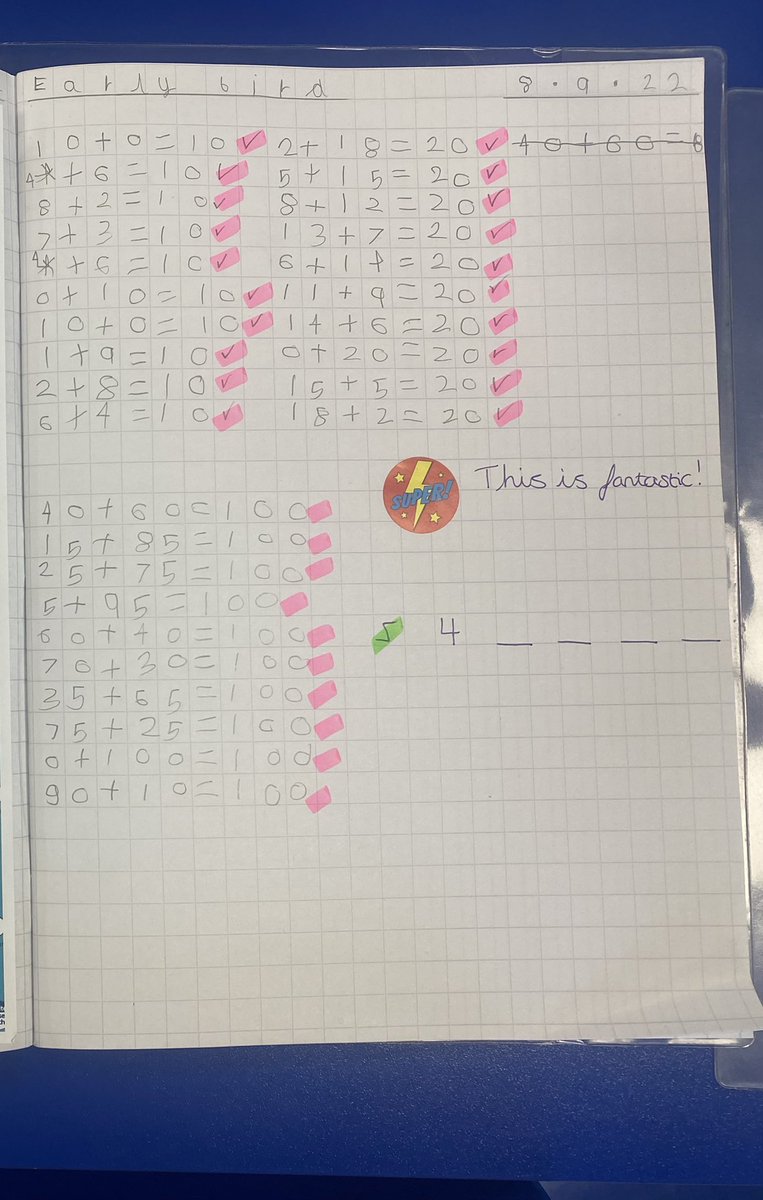 Early bird
8.9.22
10+0=10 ✓
4+6=10 ✓
8+2=10 ✓
7+3=10 ✓
4+6=10 ✓
0+10=10 ✓
10+0=10 ✓
1+9=10 ✓
2+8=10 ✓
6+4=10 ✓
2+18=20 ✓
5+15=20 ✓
8+12=20 ✓
13+7=20 ✓
6+14=20 ✓
11+9=20 ✓
14+6=20 ✓
0+20=20 ✓
15+5=20 ✓
18+2=20 ✓
40+60=
SUPER!
This is fantastic!
40+60=100
15+85=100
25+75=100
5+95=100
60+40=100
70+30=100
35+65=100
75+25=100
0+100=100
90+10=100
5 4 _ _ _ _